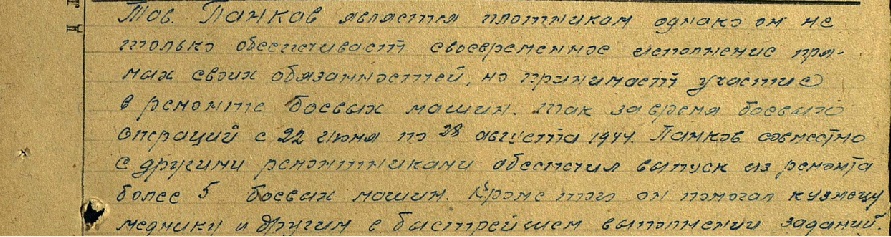 Тов. Панков является плотником однако он не
только обеспечивает своевременное исполнение пря-
мых своих обязанностей, но принимает участие
в ремонте боевых машин. Так за время боевых
операций с 22 июня по 28 августа 1944. Панков совместно
с другими ремонтниками обеспечил выпуск из ремонта
более 5 боевых машин. Кроме того он помогал кузнецу
меднику и другим в быстрейшем выполнении заданий.